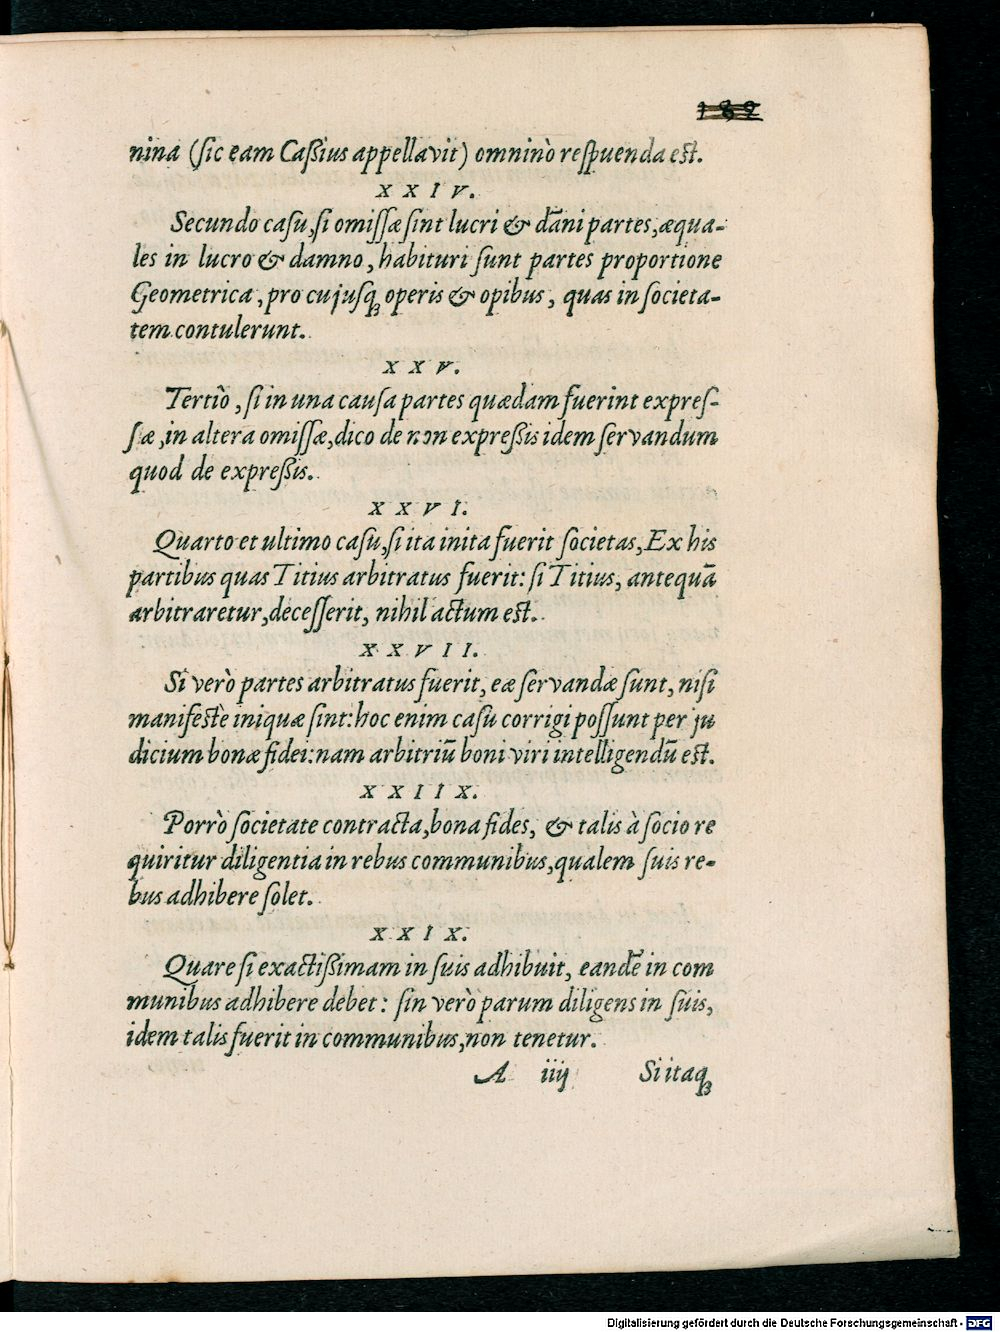 189
nina (ſic eam Caſsius appellavit) omninò reſpuenda eſt.
XXIV.
Secundo caſu, ſi omiſſæ ſint lucri & dāni partes, æqua-
les in lucro & damno, habituri ſunt partes proportione
Geometrica, pro cujuſq; operis & opibus, quas in ſocieta-
tem contulerunt.
XXV.
Tertiò, ſi in una cauſa partes quædam fuerint expreſ-
ſæ, in altera omiſſæ, dico de non expreſsis idem ſervandum
quod de expreſsis.
XXVI.
Quarto et ultimo caſu, ſi ita inita fuerit ſocietas, Ex his
partibus quas Titius arbitratus fuerit: ſi Titius, antequā
arbitraretur, deceſſerit, nihil actum eſt.
XXVII.
Si verò partes arbitratus fuerit, eæ ſervandæ ſunt, niſi
manifeſtè iniquæ ſint: hoc enim caſu corrigi poſſunt per ju
dicium bonæ fidei: nam arbitriū boni viri intelligendū eſt.
XXIIX.
Porrò ſocietate contracta, bona fides, & talis à ſocio re
quiritur diligentia in rebus communibus, qualem ſuis re-
bus adhibere ſolet.
XXIX.
Quare ſi exactiſsimam in ſuis adhibuit, eandē in com
munibus adhibere debet: ſin verò parum diligens in ſuis,
idem talis fuerit in communibus, non tenetur.
A iiij Si itaq;
Digitalisierung gefördert durch die Deutsche Forschungsgemeinschaft - DFG